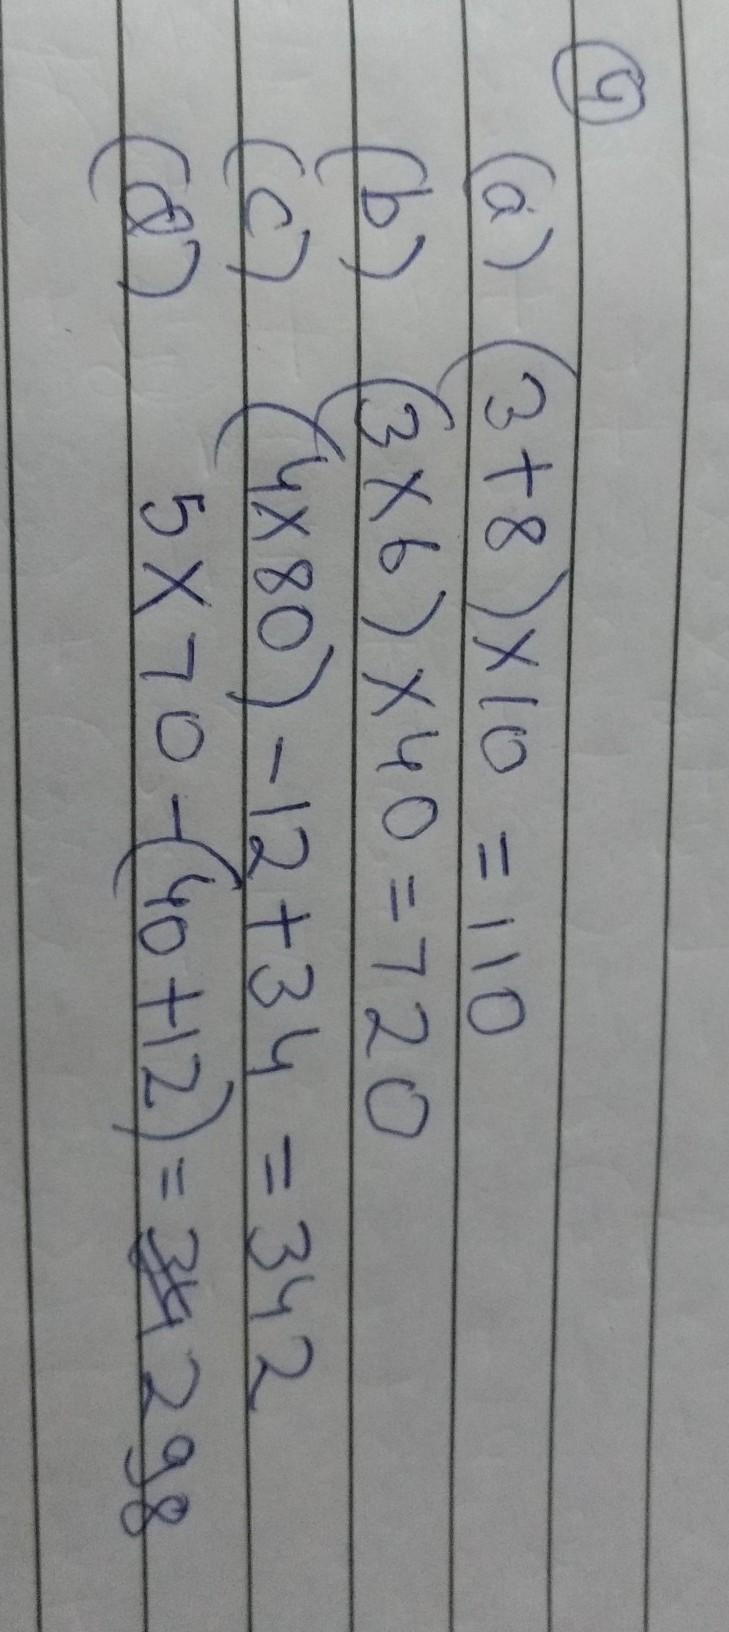 4
(a) (3+8)×10 = 110
(b) (3×6)×40=720
(c) (4×80)-12+34 = 342
(d) 5×70-(40+12)= 298